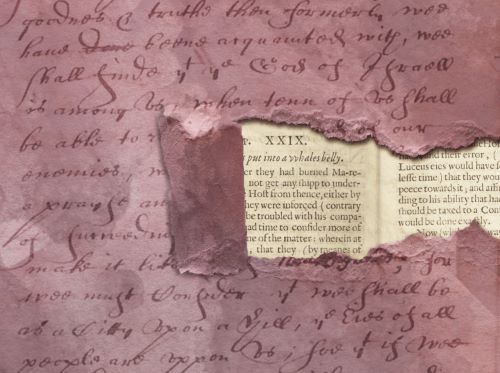 goodnes & truthe then formerly wee
have beene acquainted with, wee
shall finde yt ye God of Israell
is among us, when tenn of us shall
be able to
our
enemies,
a prayse and
of succeed
make it like
wee must Consider yt wee shall be
as a Citty upon a Hill, ye Eies of all
people are uppon us; soe yt if wee
XXIX.
put into a whales belly.
er they had burned Ma-re-
not get any shipp to under-
Host from thence, either by
they were inforced (contrary
be troubled with his compa-
nd time to consider more of
ne of the matter: wherein at
, that they (by meanes of
and their error, (
Lucceus eies would have f
lesse time) that they wou
peece towards it; and aft
ding to his ability that ha
should be taxed to a Cou
would be done exactly.
Now (with